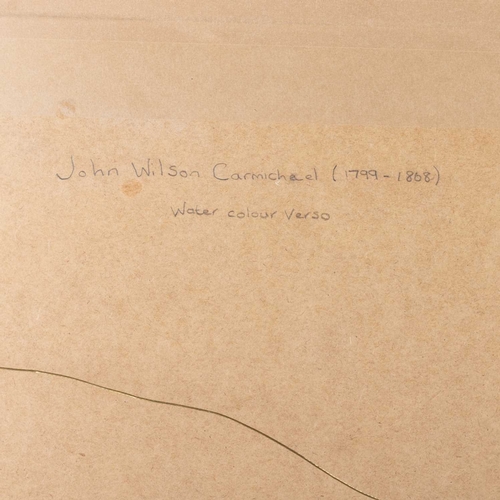 John Wilson Carmichael (1799-1868)
Water colour Verso